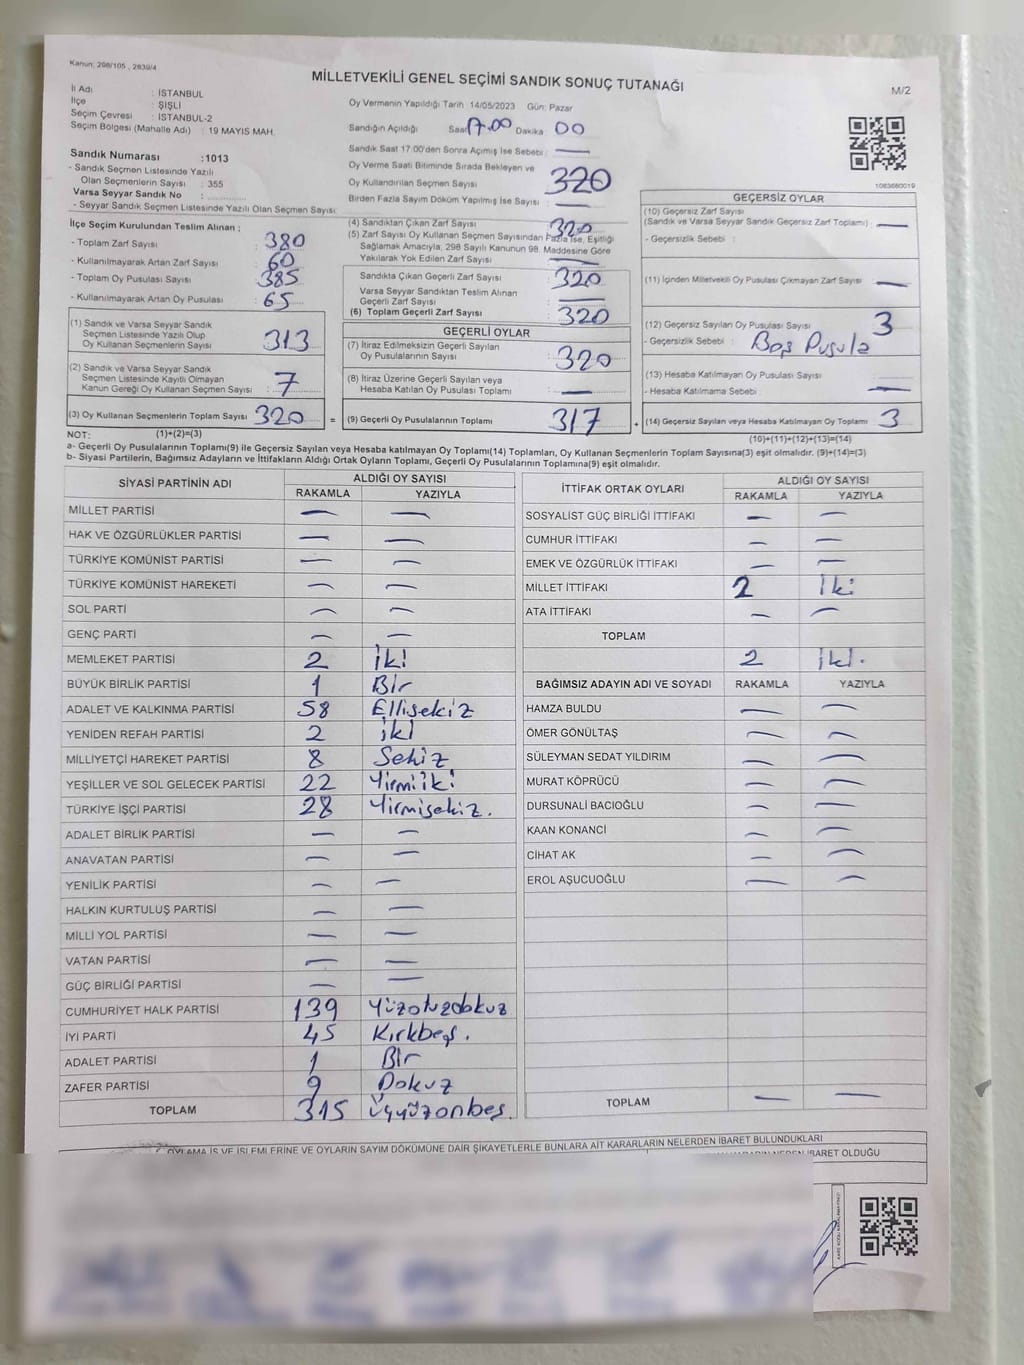 Kanun: 298/105 , 2839/4
MİLLETVEKİLİ GENEL SEÇİMİ SANDIK SONUÇ TUTANAĞI
M/2
İl Adı : İSTANBUL
İlçe : ŞİŞLİ
Seçim Çevresi : İSTANBUL-2
Seçim Bölgesi (Mahalle Adı) : 19 MAYIS MAH.
Sandık Numarası :1013
- Sandık Seçmen Listesinde Yazılı
Olan Seçmenlerin Sayısı : 355
Varsa Seyyar Sandık No :
- Seyyar Sandık Seçmen Listesinde Yazılı Olan Seçmen Sayısı:
Oy Vermenin Yapıldığı Tarih 14/05/2023 Gün: Pazar
Sandığın Açıldığı Saat 17.00 Dakika 00
Sandık Saat 17:00'den Sonra Açımış İse Sebebi : —
Oy Verme Saati Bitiminde Sırada Bekleyen ve
Oy Kullandırılan Seçmen Sayısı 320
Birden Fazla Sayım Döküm Yapılmış İse Sayısı : —
1083660019
İlçe Seçim Kurulundan Teslim Alınan ;
- Toplam Zarf Sayısı : 380
- Kullanılmayarak Artan Zarf Sayısı : 60
- Toplam Oy Pusulası Sayısı : 385
- Kullanılmayarak Artan Oy Pusulası : 65
(1) Sandık ve Varsa Seyyar Sandık
Seçmen Listesinde Yazılı Olup
Oy Kullanan Seçmenlerin Sayısı : 313
(2) Sandık ve Varsa Seyyar Sandık
Seçmen Listesinde Kayıtlı Olmayan
Kanun Gereği Oy Kullanan Seçmen Sayısı : 7
(3) Oy Kullanan Seçmenlerin Toplam Sayısı 320 =
(4) Sandıktan Çıkan Zarf Sayısı : 320
(5) Zarf Sayısı Oy Kullanan Seçmen Sayısından Fazla İse, Eşitliği
Sağlamak Amacıyla, 298 Sayılı Kanunun 98. Maddesine Göre
Yakılarak Yok Edilen Zarf Sayısı : —
Sandıkta Çıkan Geçerli Zarf Sayısı : 320
Varsa Seyyar Sandıktan Teslim Alınan
Geçerli Zarf Sayısı : —
(6) Toplam Geçerli Zarf Sayısı : 320
GEÇERLİ OYLAR
(7) İtiraz Edilmeksizin Geçerli Sayılan
Oy Pusulalarının Sayısı : 320
(8) İtiraz Üzerine Geçerli Sayılan veya
Hesaba Katılan Oy Pusulası Toplamı : —
(9) Geçerli Oy Pusulalarının Toplamı : 317 +
GEÇERSİZ OYLAR
(10) Geçersiz Zarf Sayısı
(Sandık ve Varsa Seyyar Sandık Geçersiz Zarf Toplamı) : —
- Geçersizlik Sebebi :
(11) İçinden Milletvekili Oy Pusulası Çıkmayan Zarf Sayısı : —
(12) Geçersiz Sayılan Oy Pusulası Sayısı : 3
- Geçersizlik Sebebi : Boş Pusula
(13) Hesaba Katılmayan Oy Pusulası Sayısı :
- Hesaba Katılmama Sebebi : —
(14) Geçersiz Sayılan veya Hesaba Katılmayan Oy Toplamı : 3
NOT: (1)+(2)=(3)
(10)+(11)+(12)+(13)=(14)
a- Geçerli Oy Pusulalarının Toplamı(9) ile Geçersiz Sayılan veya Hesaba katılmayan Oy Toplamı(14) Toplamları, Oy Kullanan Seçmenlerin Toplam Sayısına(3) eşit olmalıdır. (9)+(14)=(3)
b- Siyasi Partilerin, Bağımsız Adayların ve İttifakların Aldığı Ortak Oyların Toplamı, Geçerli Oy Pusulalarının Toplamına(9) eşit olmalıdır.
SİYASİ PARTİNİN ADI ALDIĞI OY SAYISI
RAKAMLA YAZIYLA
MİLLET PARTİSİ — —
HAK VE ÖZGÜRLÜKLER PARTİSİ — —
TÜRKİYE KOMÜNİST PARTİSİ — —
TÜRKİYE KOMÜNİST HAREKETİ — —
SOL PARTİ — —
GENÇ PARTİ — —
MEMLEKET PARTİSİ 2 İki
BÜYÜK BİRLİK PARTİSİ 1 Bir
ADALET VE KALKINMA PARTİSİ 58 Ellisekiz
YENİDEN REFAH PARTİSİ 2 iki
MİLLİYETÇİ HAREKET PARTİSİ 8 Sekiz
YEŞİLLER VE SOL GELECEK PARTİSİ 22 Yirmiiki
TÜRKİYE İŞÇİ PARTİSİ 28 Yirmisekiz.
ADALET BİRLİK PARTİSİ — —
ANAVATAN PARTİSİ — —
YENİLİK PARTİSİ — —
HALKIN KURTULUŞ PARTİSİ — —
MİLLİ YOL PARTİSİ — —
VATAN PARTİSİ — —
GÜÇ BİRLİĞİ PARTİSİ — —
CUMHURİYET HALK PARTİSİ 139 Yüzotuzdokuz
İYİ PARTİ 45 Kırkbeş.
ADALET PARTİSİ 1 Bir
ZAFER PARTİSİ 9 Dokuz
TOPLAM 315 Üçyüzonbeş.
İTTİFAK ORTAK OYLARI ALDIĞI OY SAYISI
RAKAMLA YAZIYLA
SOSYALİST GÜÇ BİRLİĞİ İTTİFAKI — —
CUMHUR İTTİFAKI — —
EMEK VE ÖZGÜRLÜK İTTİFAKI — —
MİLLET İTTİFAKI 2 İki
ATA İTTİFAKI — —
TOPLAM
2 İki.
BAĞIMSIZ ADAYIN ADI VE SOYADI RAKAMLA YAZIYLA
HAMZA BULDU — —
ÖMER GÖNÜLTAŞ — —
SÜLEYMAN SEDAT YILDIRIM — —
MURAT KÖPRÜCÜ — —
DURSUNALİ BACIOĞLU — —
KAAN KONANCİ — —
CİHAT AK — —
EROL AŞUCUOĞLU — —
TOPLAM — —
OYLAMA İŞ VE İŞLEMLERİNE VE OYLARIN SAYIM DÖKÜMÜNE DAİR ŞİKAYETLERLE BUNLARA AİT KARARLARIN NELERDEN İBARET BULUNDUKLARI
NEDEN İBARET OLDUĞU